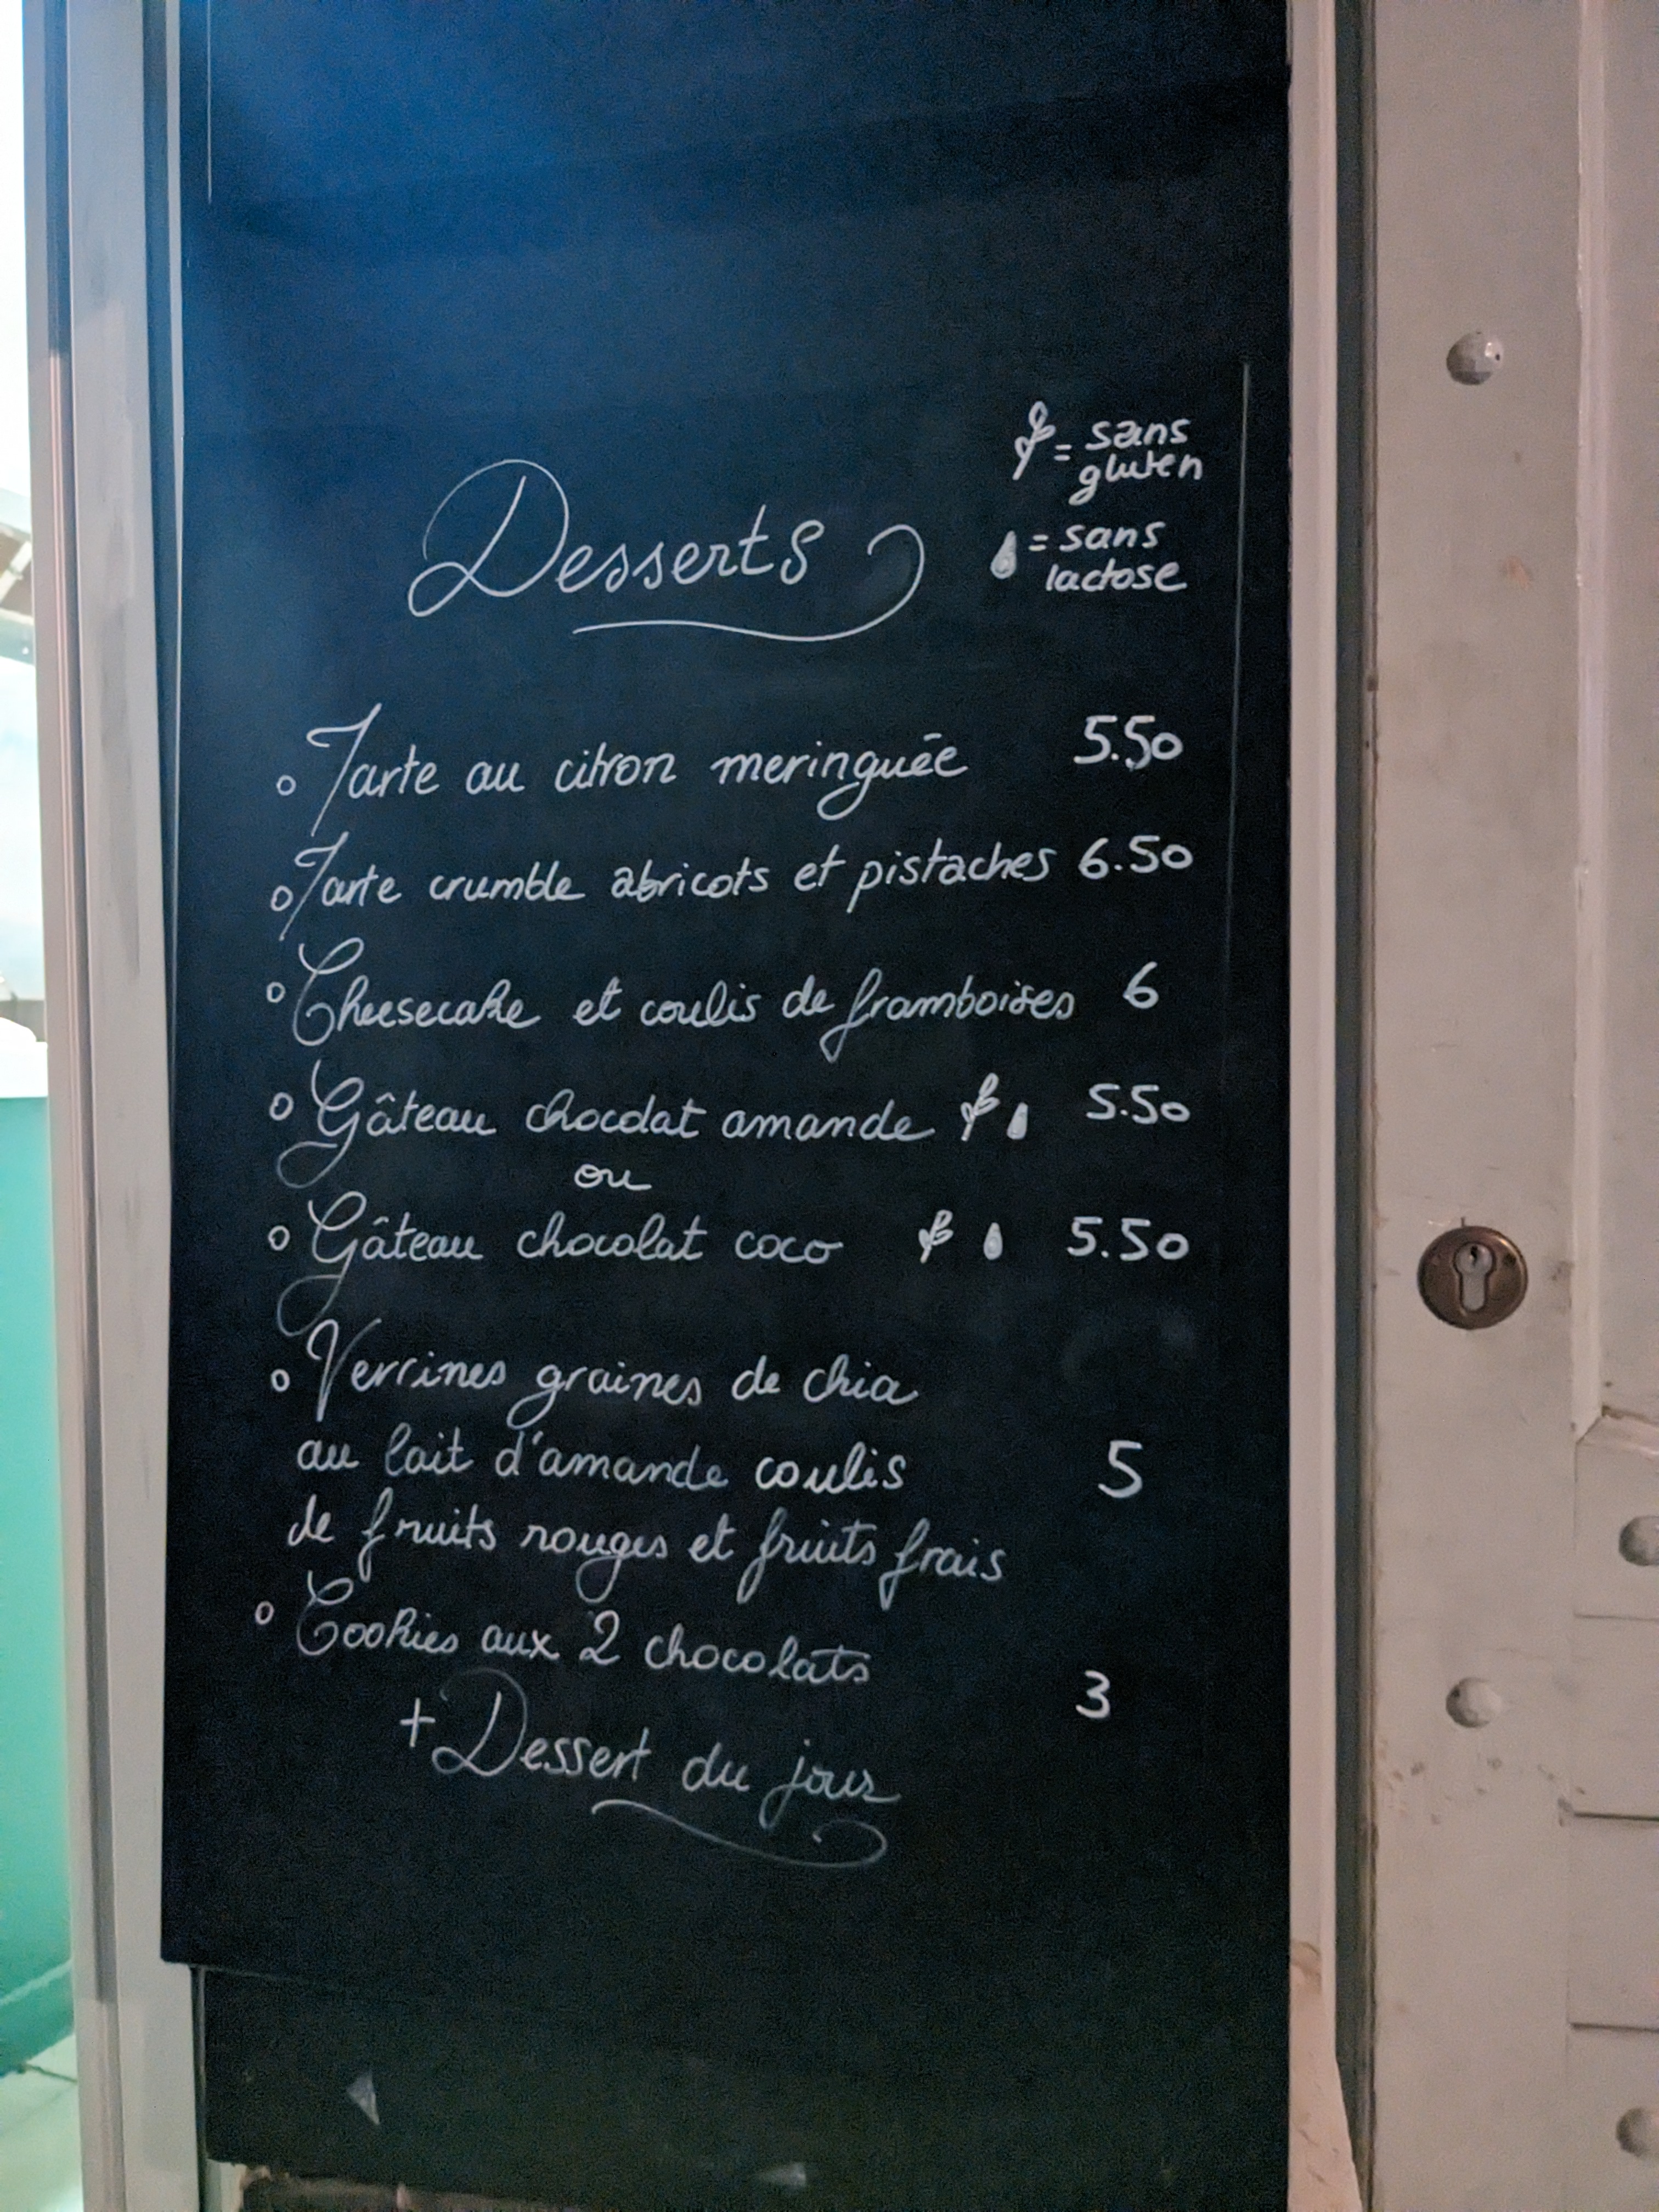 = sans
gluten
= sans
lactose
Desserts
Tarte au citron meringuée 5.50
Tarte crumble abricots et pistaches 6.50
Cheesecake et coulis de framboises 6
Gâteau chocolat amande 5.50
ou
Gâteau chocolat coco 5.50
Verrines graines de chia
au lait d'amande coulis 5
de fruits rouges et fruits frais
Cookies aux 2 chocolats 3
+ Dessert du jour